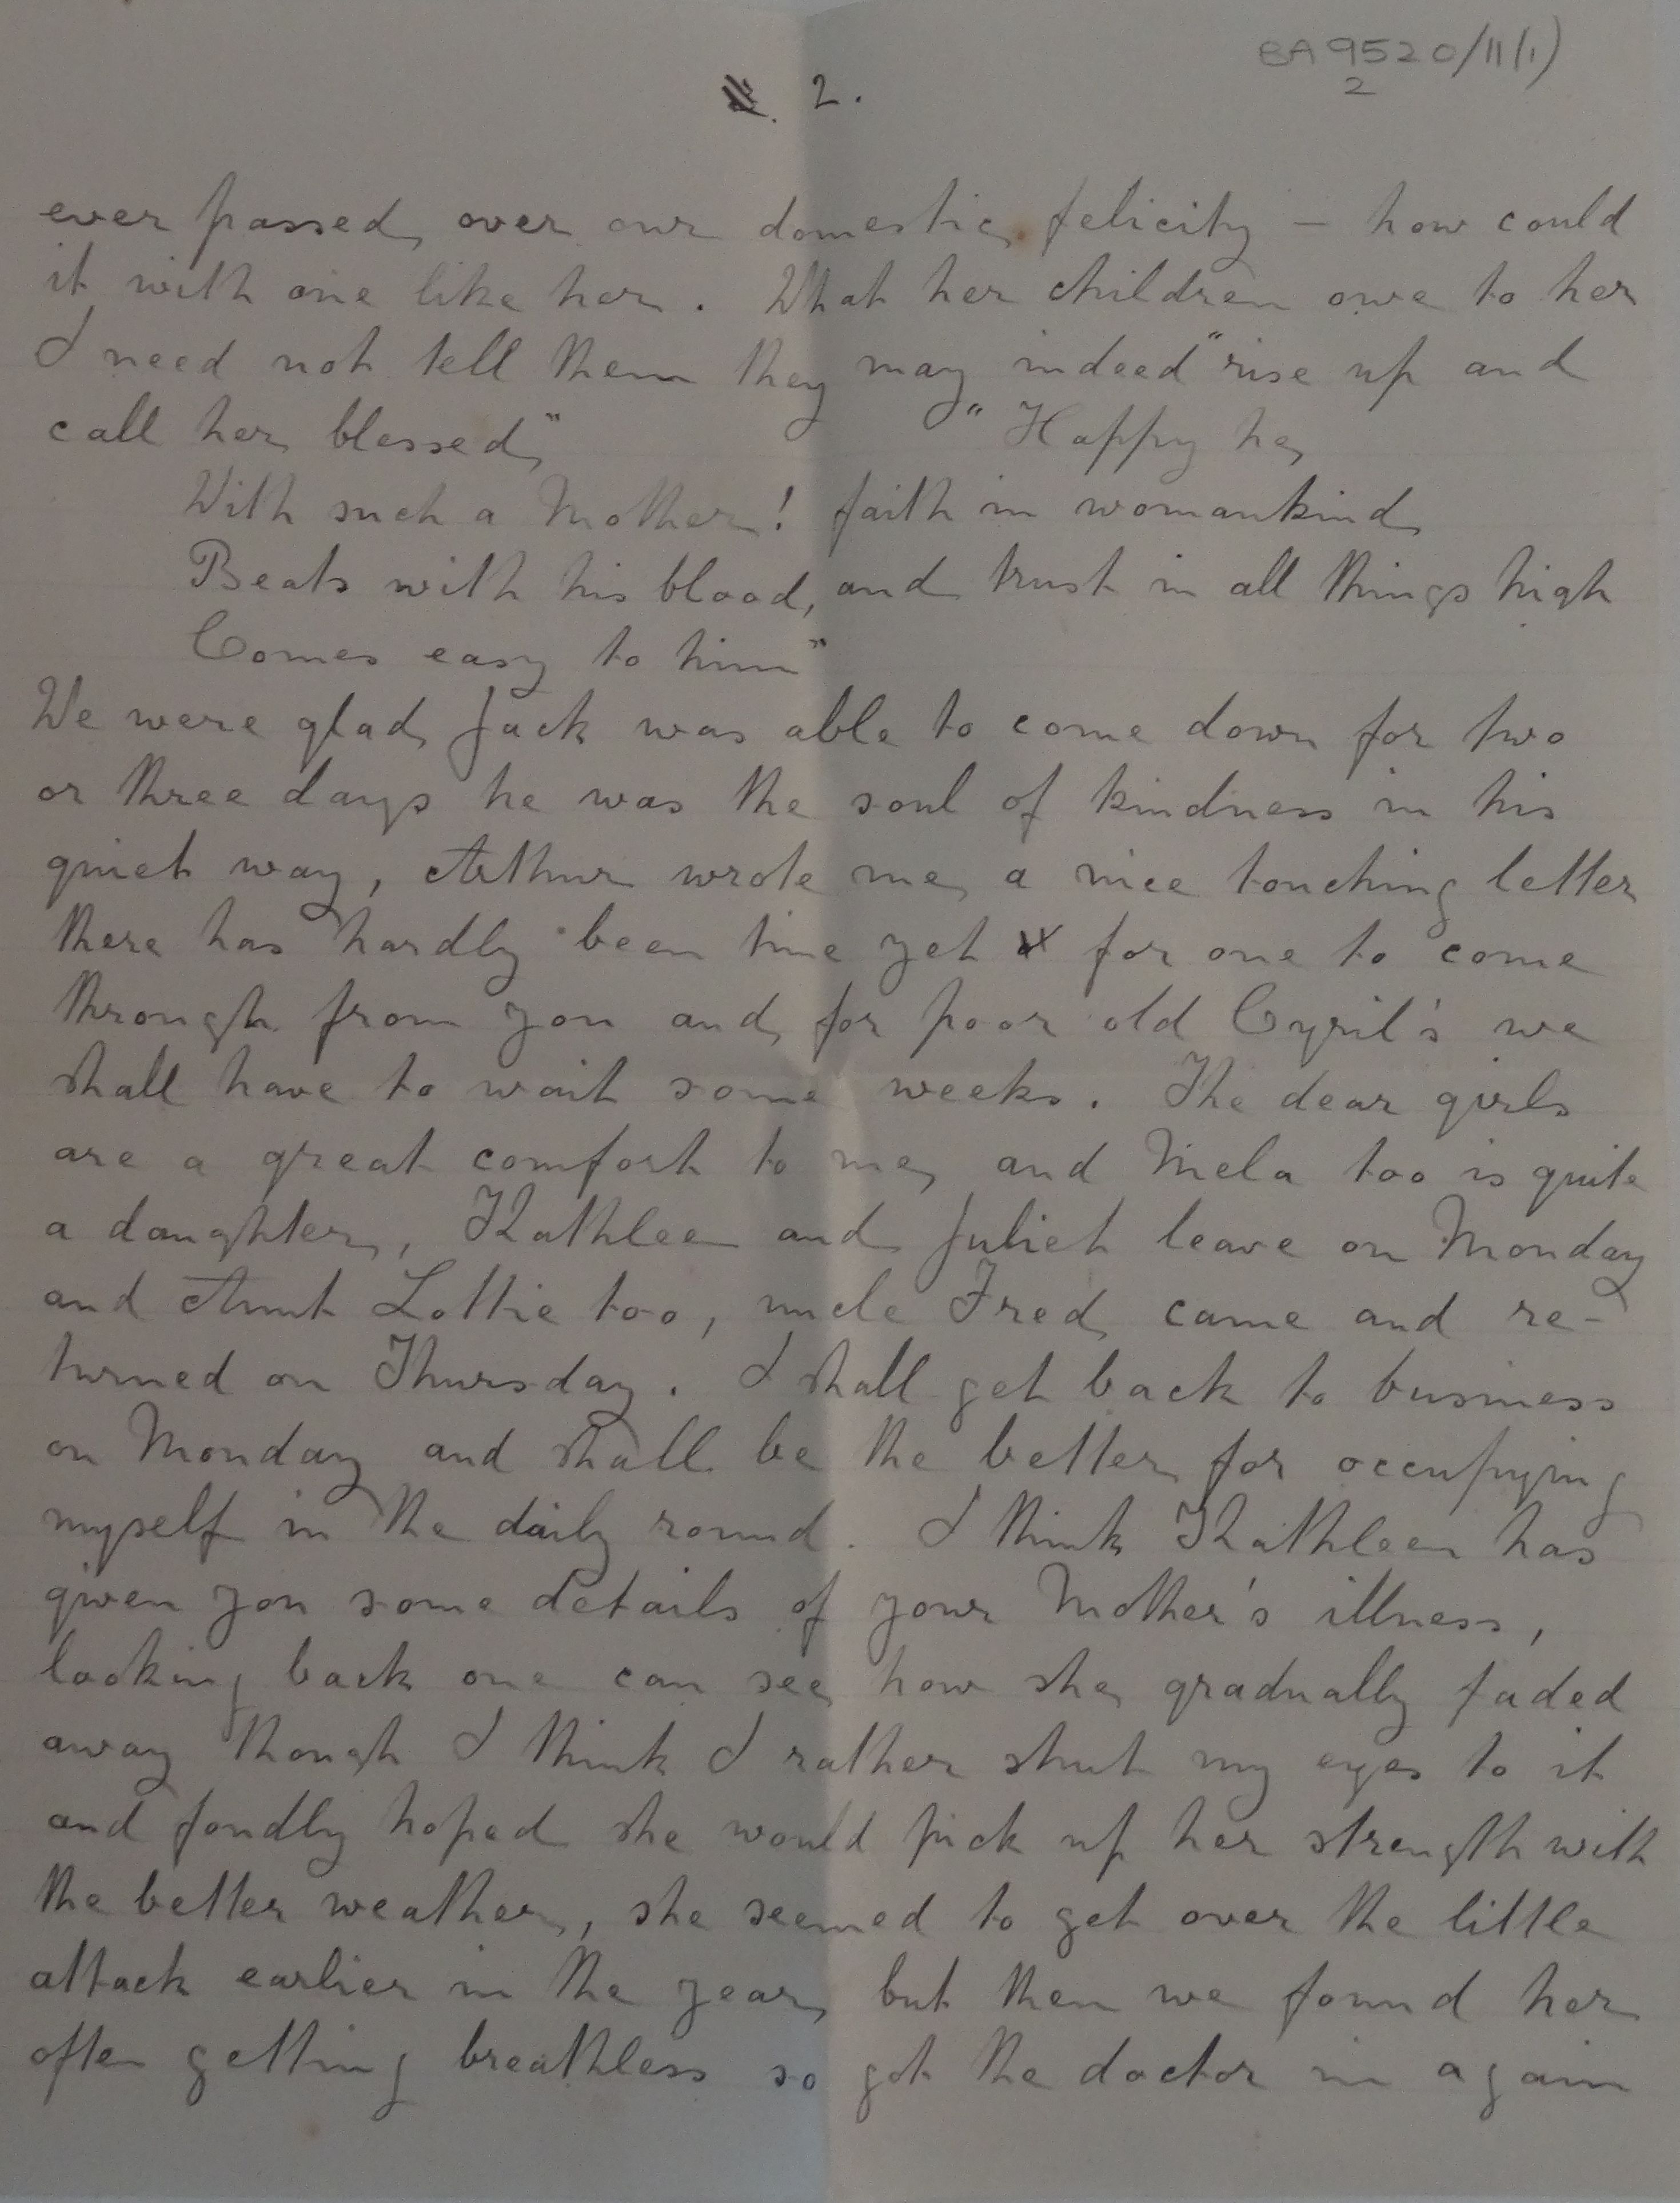 BA 9520/11(1)
2
2.
ever passed over our domestic felicity – how could
it with one like her. What her children owe to her
I need not tell them they may indeed "rise up and
call her blessed" "Happy he
With such a Mother! faith in womankind
Beats with his blood, and trust in all things high
Comes easy to him"
We were glad Jack was able to come down for two
or three days he was the soul of kindness in his
quiet way, Arthur wrote me a nice touching letter
there has hardly been time yet for one to come
through from you and for poor old Cyril's we
shall have to wait some weeks. The dear girls
are a great comfort to me and Mela too is quite
a daughter, Kathleen and Juliet leave on Monday
and Aunt Lottie too, uncle Fred came and re-
turned on Thursday. I shall get back to business
on Monday and shall be the better for occupying
myself in the daily round. I think Kathleen has
given you some details of your Mother's illness,
looking back one can see how she gradually faded
away though I think I rather shut my eyes to it
and fondly hoped she would pick up her strength with
the better weather, she seemed to get over the little
attack earlier in the year but then we found her
often getting breathless so got the doctor in again